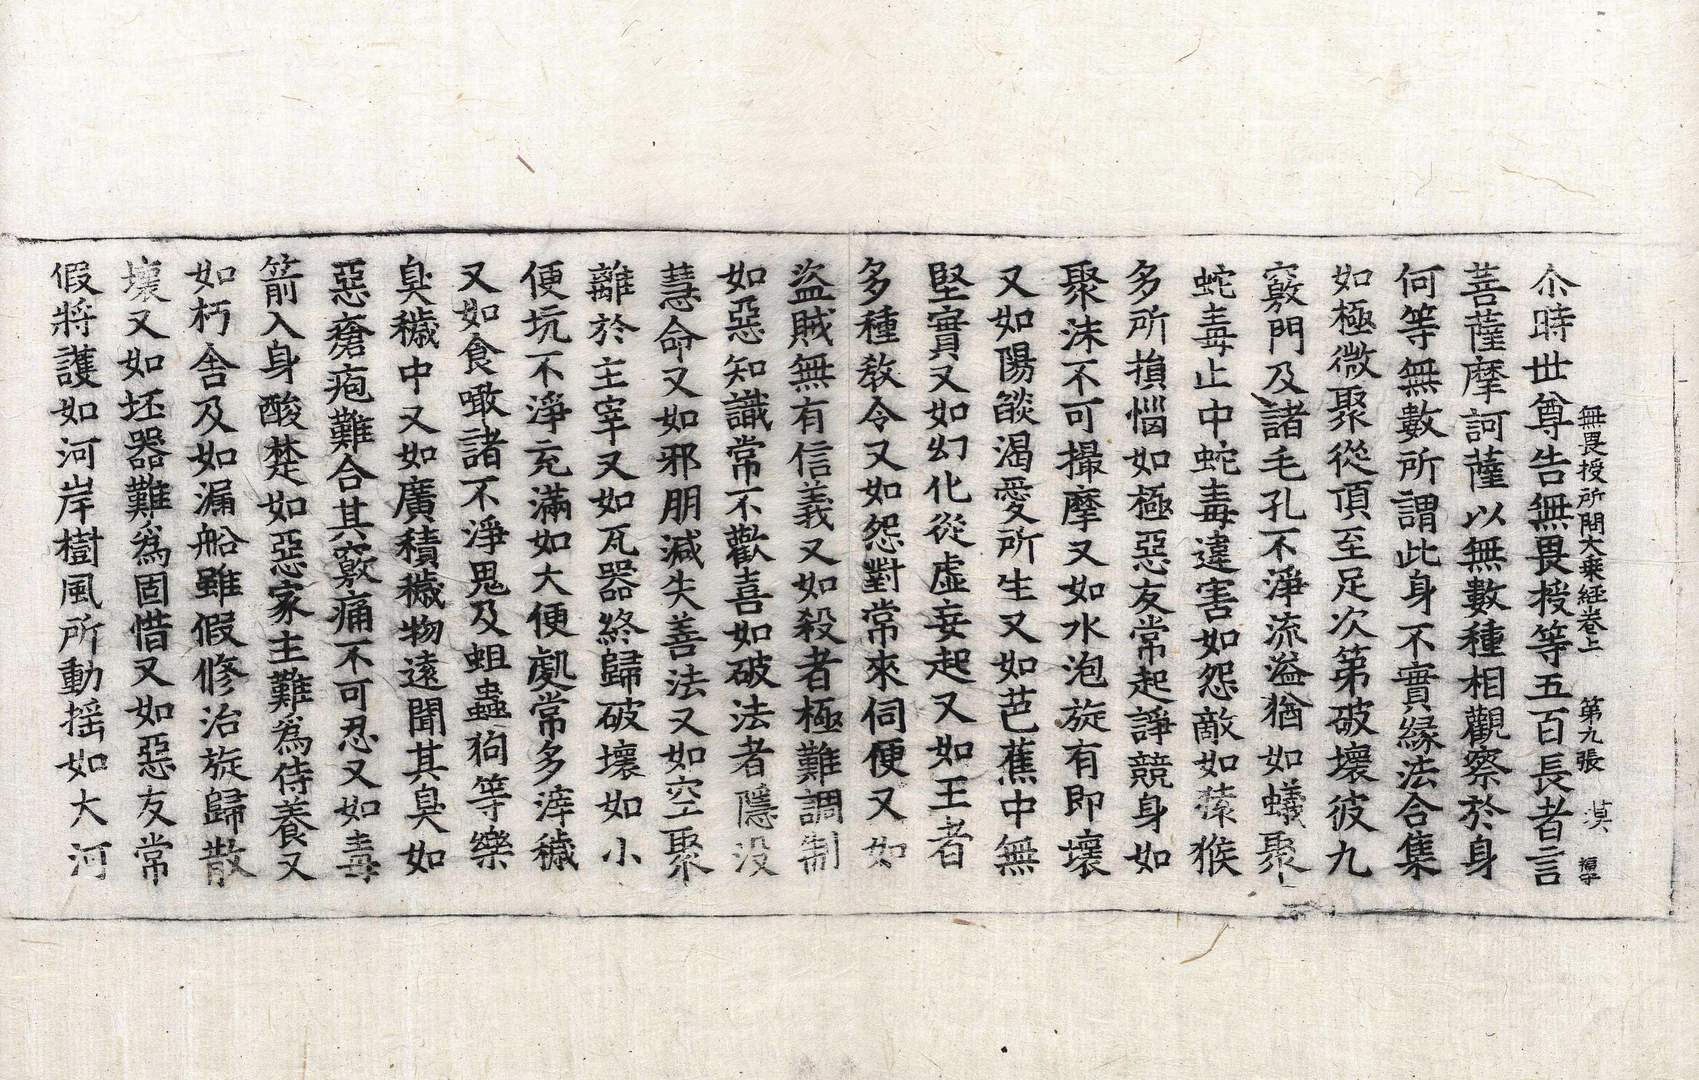 無畏授所問大乗経卷上 第九張 漠
尒時世尊告無畏授等五百長者言
菩薩摩訶薩以無數種相觀察於身
何等無數所謂此身不實緣法合集
如極微聚從頂至足次第破壞彼九
竅門及諸毛孔不淨流溢猶如蟻聚
蛇毒止中蛇毒違害如怨敵如猿猴
多所損惱如極惡友常起諍競身如
聚沫不可撮摩又如水泡旋有即壞
又如陽燄渴愛所生又如芭蕉中無
堅實又如幻化從虛妄起又如王者
多種敎令又如怨對常來伺便又如
盜賊無有信義又如殺者極難調制
如惡知識常不歡喜如破法者隱没
慧命又如邪朋減失善法又如空聚
離於主宰又如瓦器終歸破壞如小
便坑不淨充滿如大便處常多滓穢
又如食噉諸不淨鬼及蛆蟲狗等樂
臭穢中又如廣積穢物遠聞其臭如
惡瘡疱難合其竅痛不可忍又如毒
箭入身酸楚如惡家主難爲侍養又
如朽舍及如漏船雖假修治旋歸散
壞又如坯器難爲固惜又如惡友常
假將護如河岸樹風所動揺如大河